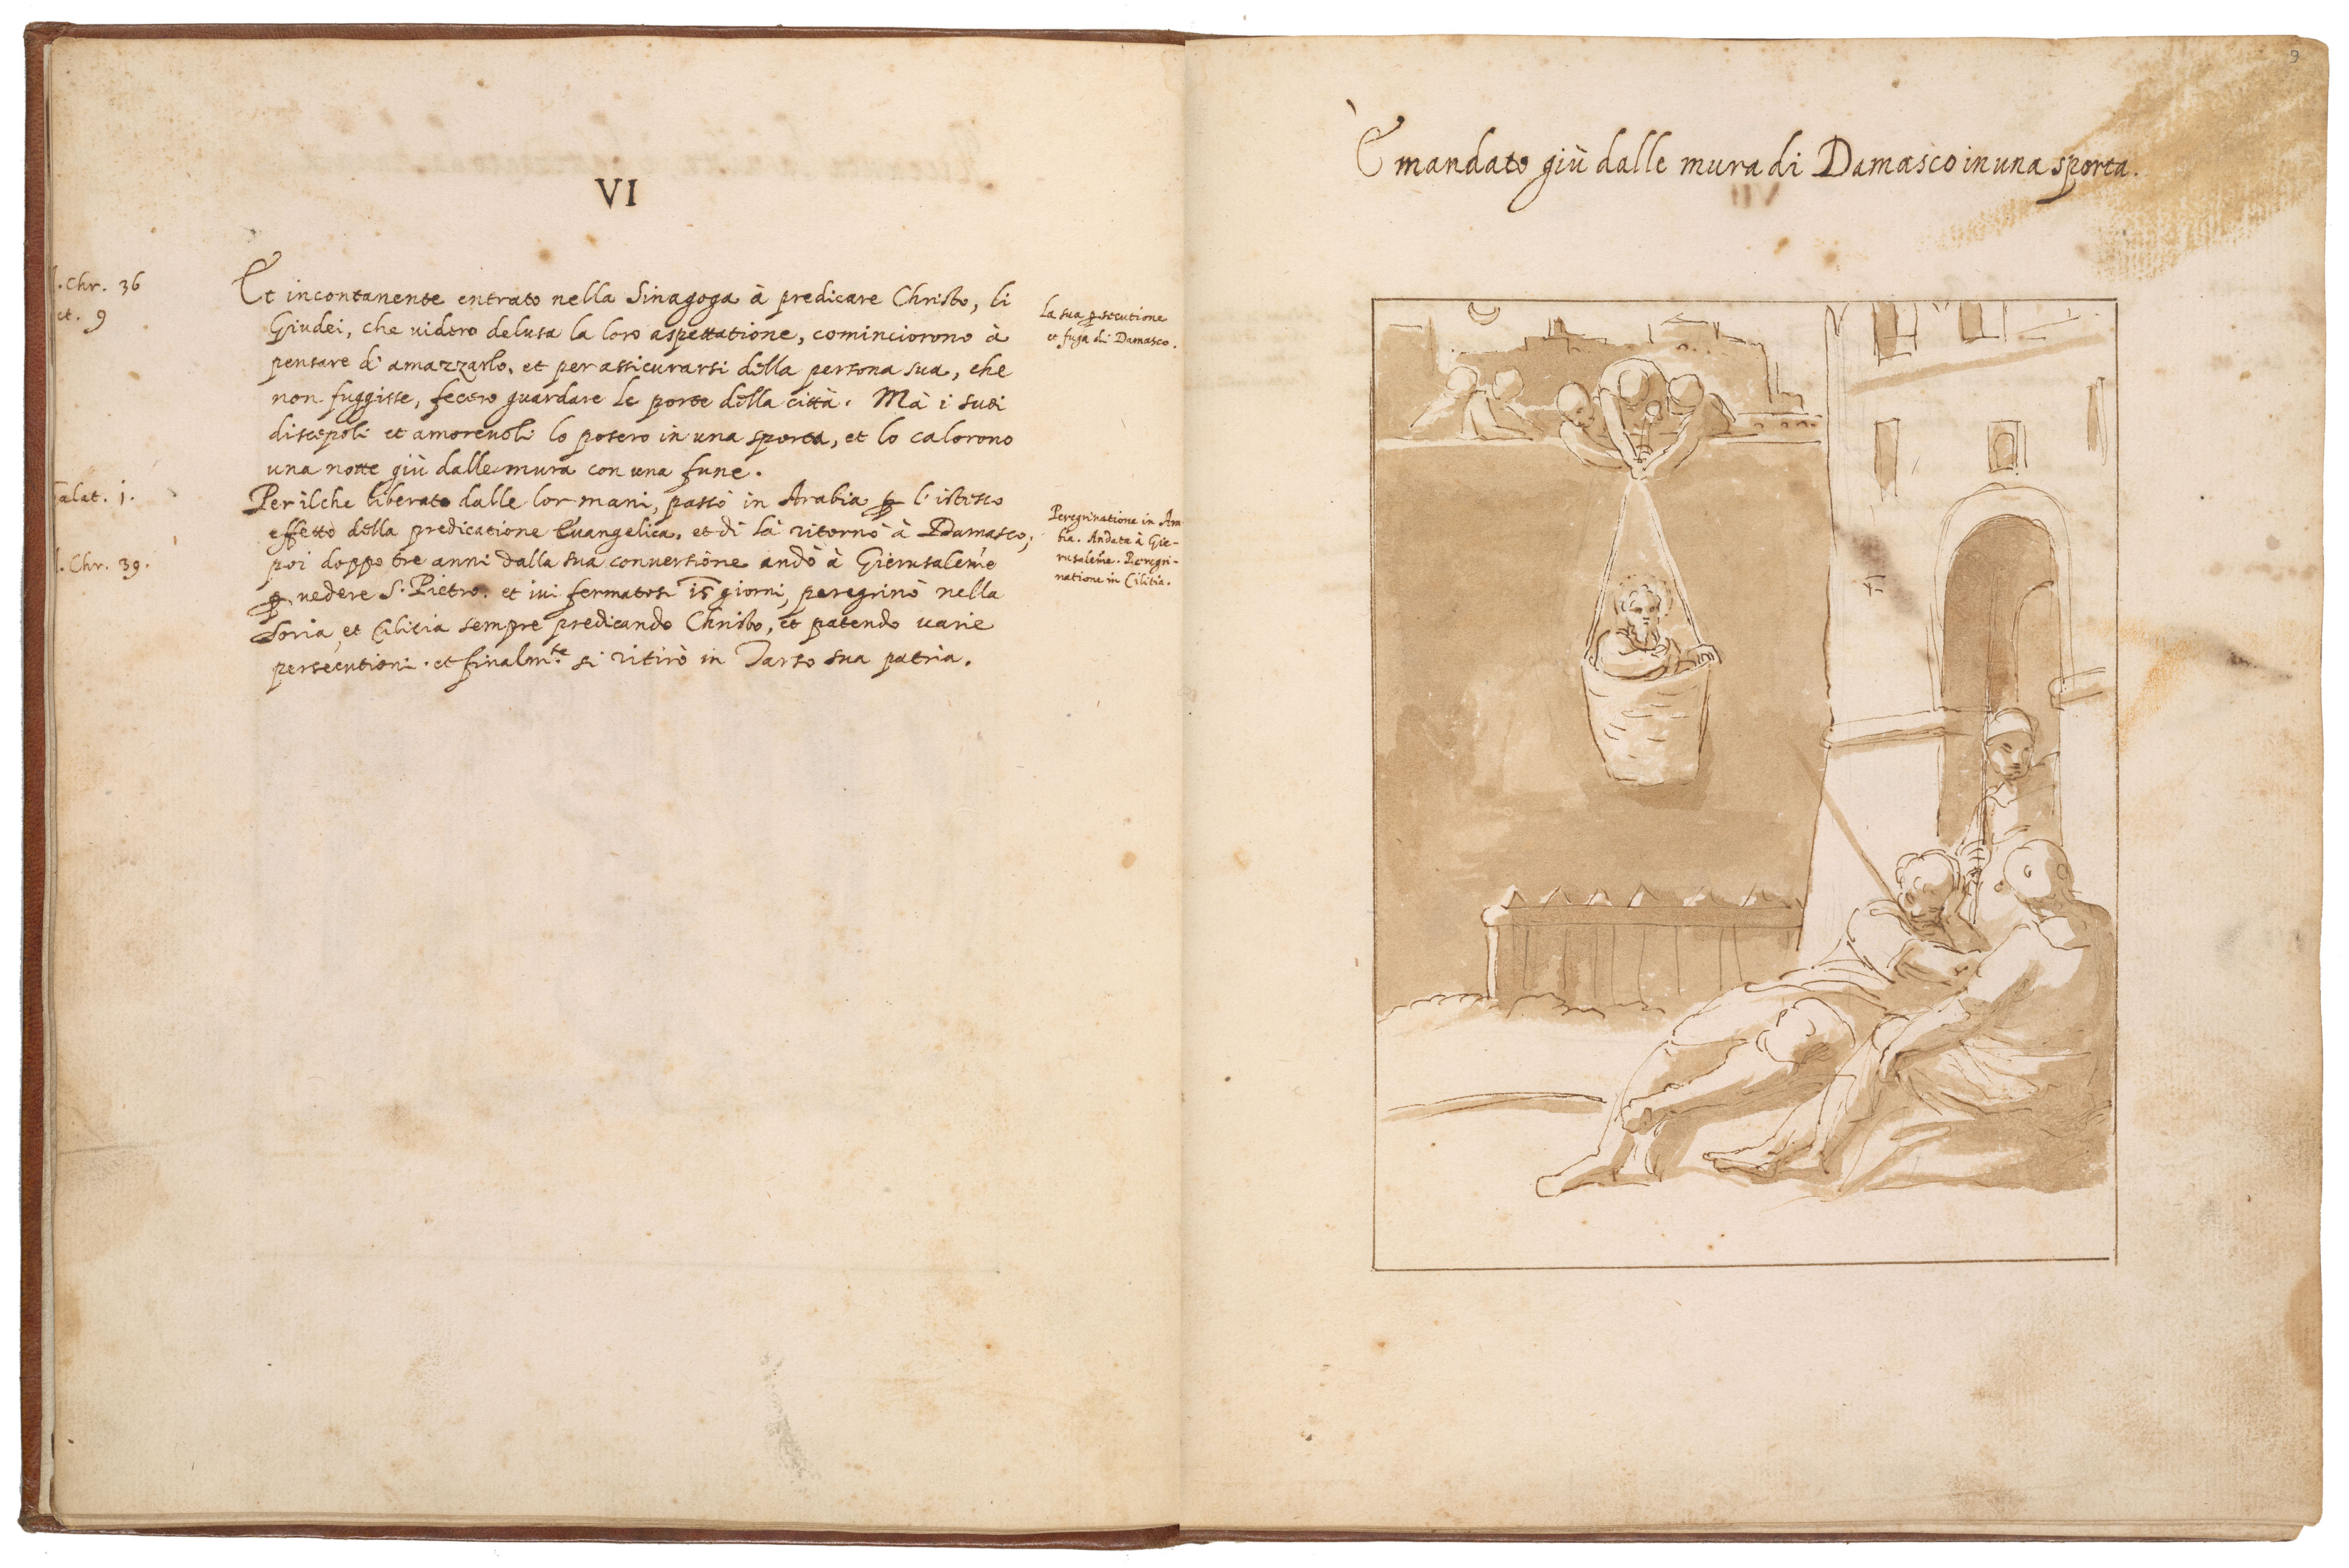 VI
.Chr. 36
ct. 9
Et incontanente entrato nella Sinagoga à predicare Christo, li
Giudei, che uidero delusa la loro aspettatione, cominciorono à
pensare di amazzarlo, et per assicurarsi della persona sua, che
non fuggisse, fecero guardare le porte della città. Mà i suoi
discepoli et amoreuoli lo posero in una sporta, et lo calorono
una notte giù dalle mura con una fune.
La sua ꝑsecutione
et fuga di Damasco.
alat. i.
Perilche liberato dalle lor mani, passò in Arabia ꝑ l'istesso
effetto della predicatione Euangelica, et di là ritornò à Damasco,
poi doppo tre anni dalla sua conuersione andò à Gierusalem̃e
ꝑ uedere S. Pietro. et iui fermatosi 15 giorni, peregrinò nella
Soria, et Cilicia sempre predicando Christo, et patendo uarie
persecutioni. et finalm.te si ritirò in Tarso sua patria.
.Chr. 39.
Peregrinatione in Ara
bia. Andata à Gie-
rusalem̃e. Peregri-
natione in Cilitia.
9
È mandato giù dalle mura di Damasco in una sporta.
VII